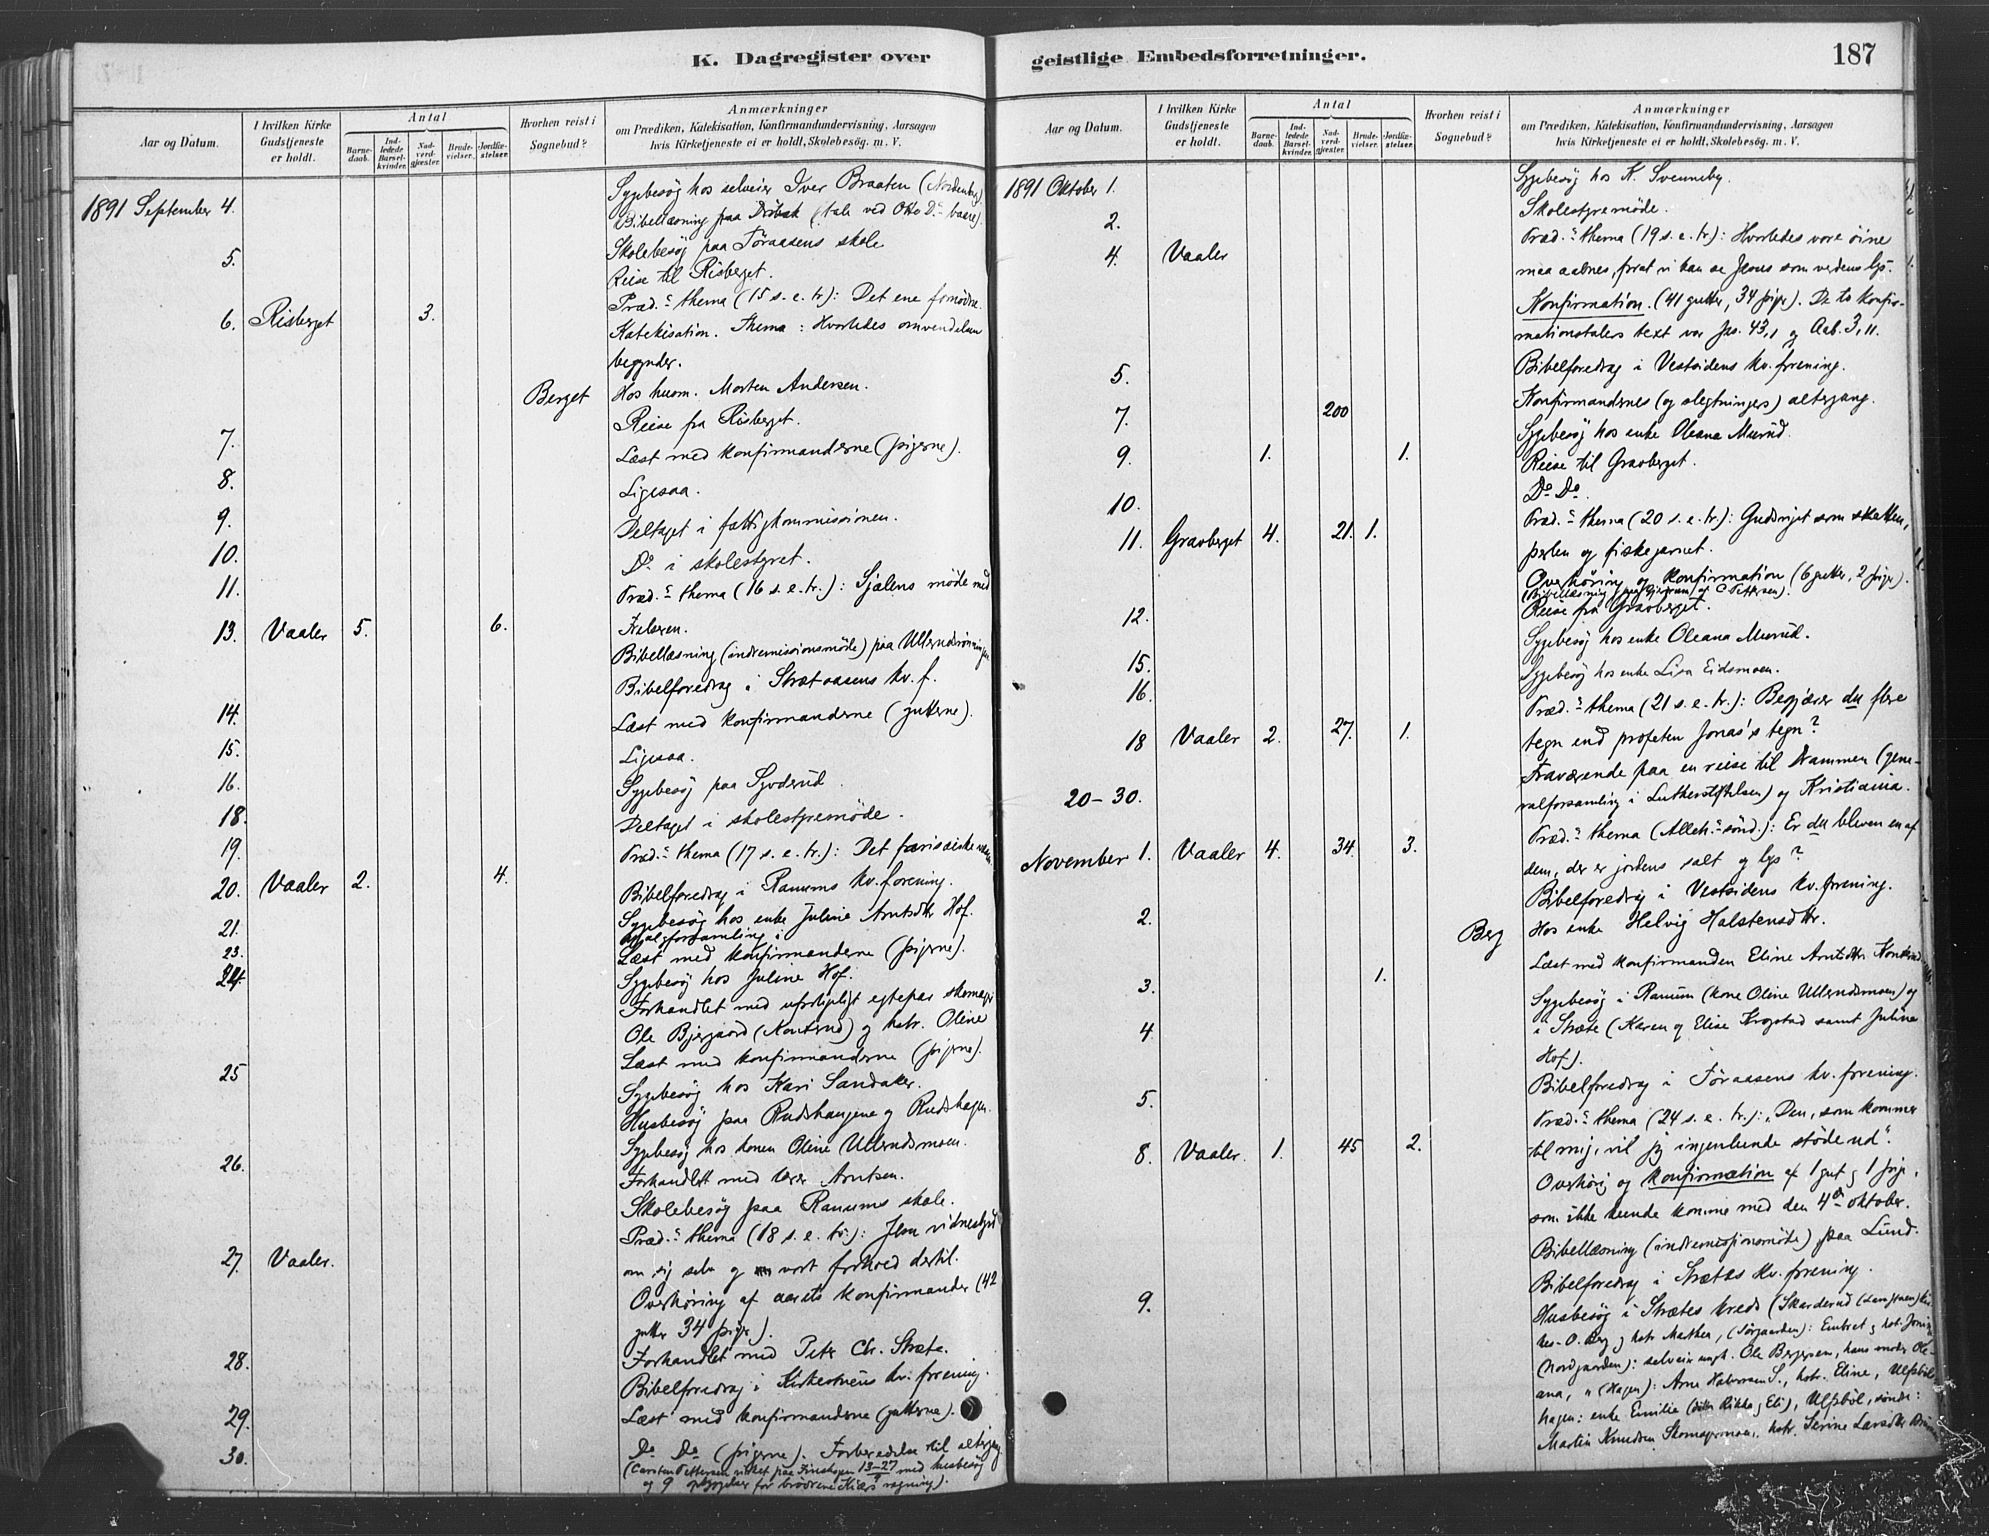 K. Dagregister over
Aar og Datum.
I hvilken Kirke Gudstjeneste er holdt.
Antal
Barnedaab.
Indledede Barselkvinder.
Nadverdgjester.
Brudevielser.
Jordfæstelser.
Hvorhen reist i Sognebud?
Anmærkninger
om Prædiken, Katekisation, Konfirmandundervisning, Aarsagen
hvis Kirketjeneste ei er holdt, Skolebesøg. m. V.
1891 September 4. Sygebesøg hos selveier Iver Braaten
Bibellæsning paa
5. Skolebesøg paa Føraasens skole
Reise til Risberget.
6. Risberget 3. Præd.s thema (15 s. e. tr.): Det ene fornødne.
Katekisation. Thema: Hvorledes omvendelsen
begynder.
Berget Hos huom. Morten Andersen.
Reise fra Risberget.
7. Læst med konfirmanderne (pigerne).
8. Ligesaa.
9. Deltaget i fattigkommissionen.
10. Do i skolestyret.
11. Præd.s thema (16 s. e. tr.): Sjælens møde med
13. Vaaler 5. 6. Frelseren.
Bibellæsning (indremissionsmøde) paa
Bibelforedrag i Strætaasens kv. f.
14. Læst med konfirmanderne (gutterne).
15. Ligesaa.
16. Sygebesøg paa
18. Deltaget i skolestyremøde.
19. Præd.s thema (17 s. e. tr.): Det farisæiske
20. Vaaler 2. 4. Bibelforedrag i Ranums kv. forening.
21. Sygebesøg hos enke Juline Arntsdtr Hof.
23. Læst med konfirmanderne (pigerne).
24. Sygebesøg hos Juline Hof.
Forhandlet med uforligeligt egtepar skomager
Ole Bjergaard (Konterud) og hstr. Oline
Læst med konfirmanderne (pigerne).
25 Sygebesøg hos Kari Sandaker.
Husbesøg paa Rudshaugene og Rudshagen.
Sygebesøg hos konen Oline Ullerudsmoen.
26. Forhandlet med lærer Arntsen.
Skolebesøg paa Ranums skole.
Præd.s thema (18 s. e. tr.): Jesu vidnesbyrd
27. Vaaler. om sig selv og vort forhold dertil.
Overhøring af aarets konfirmander (42
gutter 34 piger).
28. Forhandlet med Petr Ch. Stræte.
Bibelforedrag i kv. forening.
29. Læst med konfirmanderne (gutterne).
30. Do Do (pigerne). Forberedelse til altergang
(Carsten Pettersen virket paa Finskogen 13-27/9 med husbesøg
og 9 opbyggelser for brødrene Kiærs regning).
geistlige Embedsforretninger.
187
Aar og Datum.
I hvilken Kirke Gudstjeneste er holdt.
Antal
Barnedaab.
Indledede Barselkvinder.
Nadverdgjester.
Brudevielser.
Jordfæstelser.
Hvorhen reist i Sognebud?
Anmærkninger
om Prædiken, Katekisation, Konfirmandundervisning, Aarsagen
hvis Kirketjeneste ei er holdt, Skolebesøg. m. V.
1891 Oktober 1. Sygebesøg hos K. Svenneby.
2. Skolestyremøde.
4. Vaaler Præd.s thema (19 s. e. tr): Hvorledes vore øine
maa aabnes, forat vi kan se Jesus som verdens lys.
Konfirmation. (41 gutter, 34 piger). De to konfir-
mationstalers text var Jes. 43,1 og Aab. 3,11.
5. Bibelforedrag i Vestsidens kv. forening.
7. 200 Konfirmandernes (og slegtningers) altergang.
Sygebesøg hos enke Oleana Murud.
9. 1. 1. Reise til Gravberget.
10. Do Do.
11. Gravberget 4. 21. 1. Præd.s thema (20 s. e. tr.): Gudsriget som skatten,
perlen og fiskegarnet.
Overhøring og konfirmation (6 gutter, 2 piger).
12. Reise fra Gravberget.
Sygebesøg hos enke Oleana Murud.
15. Sygebesøg hos enke Lisa Eidsmoen.
16. Præd.s thema (21 s. e. tr.): Begjærer du flere
18 Vaaler 2. 27. 1. tegn end profeten Jonas's tegn?
Fraværende paa en reise til Drammen (gene-
20-30. ralforsamling i Lutherstiftelsen) og Kristiania.
Præd.s thema (Alleh.s sønd.): Er du bleven en af
November 1. Vaaler 4. 34. 3. dem, der er jordens salt og lys?
Bibelforedrag i Vestsidens kv. forening.
2. Berg Hos enke Helvig Halstensdtr.
Læst med konfirmanden Eline Arntsdtr
3. 1. Sygebesøg i Ranum (kone Oline Ullerudsmoen) og
4 i Stræte (Karen og Elise Krogstad samt Juline
Hof).
Bibelforedrag i Føraasens kv. forening.
5. Præd.s thema (24 s. e. tr.): „Den, som kommer
8. Vaaler. 1. 45 2. til mig, vil jeg ingenlunde støde ud“.
Overhør. og konfirmation af 1 gut og 1 pige,
som ikke kunde komme med den 4de oktober.
Bibellæsning (indremissionsmøde) paa Lund.
Bibelforedrag i Strætes kv. forening.
9. Husbesøg i Strætes kreds (Skarderud
O. Berg og hstr Marthea, (Sørgaarden): Embret og hst.
(Nordgaarden): selveier ungk. Ole Bergersen, hans moder Ole-
ana, " (Hagen): Arne Halvorsen S., hstr. Eline,
hagen: enke Emilie
Martin Knudsen hstr. Serine Larsdtr